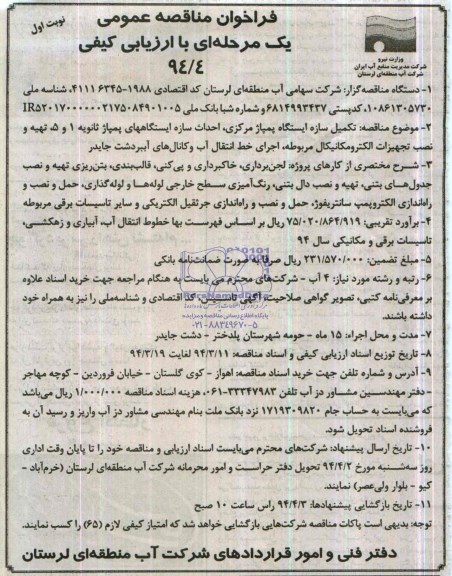 نوبت اول
فراخوان مناقصه عمومی
یک مرحله‌ای با ارزیابی کیفی
۹۴/۴
وزارت نیرو
شرکت مدیریت منابع آب ایران
شرکت آب منطقه‌ای لرستان
۱- دستگاه مناقصه‌گزار: شرکت سهامی آب منطقه‌ای لرستان کد اقتصادی ۱۹۸۸-۶۳۴۵ ۴۱۱۱، شناسه ملی
۱۰۸۶۱۳۰۵۷۳۰، کدپستی ۶۸۱۴۹۹۳۴۳۷ و شماره شبا بانک ملی IR۵۲۰۱۷۰۰۰۰۰۰۲۱۷۵۰۸۴۹۰۱۰۰۵
۲- موضوع مناقصه: تکمیل سازه ایستگاه پمپاژ مرکزی، احداث سازه ایستگاههای پمپاژ ثانویه ۱ و ۵، تهیه و
نصب تجهیزات الکترومکانیکال مربوطه، اجرای خط انتقال آب وکانال‌های آببردشت جایدر
۳- شرح مختصری از کارهای پروژه: لجن‌برداری، خاکبرداری و پی‌کنی، قالب‌بندی، بتن‌ریزی تهیه و نصب
جدول‌های بتنی، تهیه و نصب دال بتنی، رنگ‌آمیزی سطح خارجی لوله‌ها و لوله‌گذاری، حمل و نصب و
راه‌اندازی الکتروپمپ سانتریفوژ، حمل و نصب و راه‌اندازی جرثقیل الکتریکی و سایر تاسیسات برقی مربوطه
۴- برآورد تقریبی: ۷۵/۰۲۰/۸۶۴/۹۱۹ ریال بر اساس فهرست بها خطوط انتقال آب، آبیاری و زهکشی،
تاسیسات برقی و مکانیکی سال ۹۴
۵- مبلغ تضمین: ۲۳۱/۵۷۰/۰۰۰ ریال صرفا به صورت ضمانت‌نامه بانکی
۶- رتبه و رشته مورد نیاز: ۴ آب - شرکت‌های محترم می بایست به هنگام مراجعه جهت خرید اسناد علاوه
بر معرفی‌نامه کتبی، تصویر گواهی صلاحیت، آگهی تاسیس، کد اقتصادی و شناسه‌ملی را نیز به همراه خود
داشته باشند.
پایگاه اطلاع رسانی مناقصه و مزایده
۰۲۱-۸۸۳۴۹۶۷۰-۵
۷- مدت و محل اجراء: ۱۵ ماه - حومه شهرستان پلدختر - دشت جایدر
۸- تاریخ توزیع اسناد ارزیابی کیفی و اسناد مناقصه: ۹۴/۳/۱۱ لغایت ۹۴/۳/۱۹
۹- آدرس و شماره تلفن جهت خرید اسناد مناقصه: اهواز - کوی گلستان - خیابان فروردین - کوچه مهاجر
- دفتر مهندسین مشاور دز آب تلفن ۳۳۳۴۷۹۸۳-۰۶۱، هزینه اسناد مناقصه ۱/۰۰۰/۰۰۰ ریال می‌باشد
که می‌بایست به حساب جام ۱۷۱۹۳۰۹۸۲۰ نزد بانک ملت بنام مهندسی مشاور دز آب واریز و رسید آن به
فروشنده اسناد تحویل شود.
۱۰- تاریخ ارسال پیشنهاد: شرکت‌های محترم می‌بایست اسناد ارزیابی و مناقصه خود را تا پایان وقت اداری
روز سه‌شنبه مورخ ۹۴/۴/۲ تحویل دفتر حراست و امور محرمانه شرکت آب منطقه‌ای لرستان (خرم‌آباد -
کیو - بلوار ولی‌عصر) نمایند.
۱۱- تاریخ بازگشایی پیشنهادها: ۹۴/۴/۳ راس ساعت ۱۰ صبح
توجه: بدیهی است پاکات مناقصه شرکت‌هایی بازگشایی خواهد شد که امتیاز کیفی لازم (۶۵) را کسب نمایند.
دفتر فنی و امور قراردادهای شرکت آب منطقه‌ای لرستان